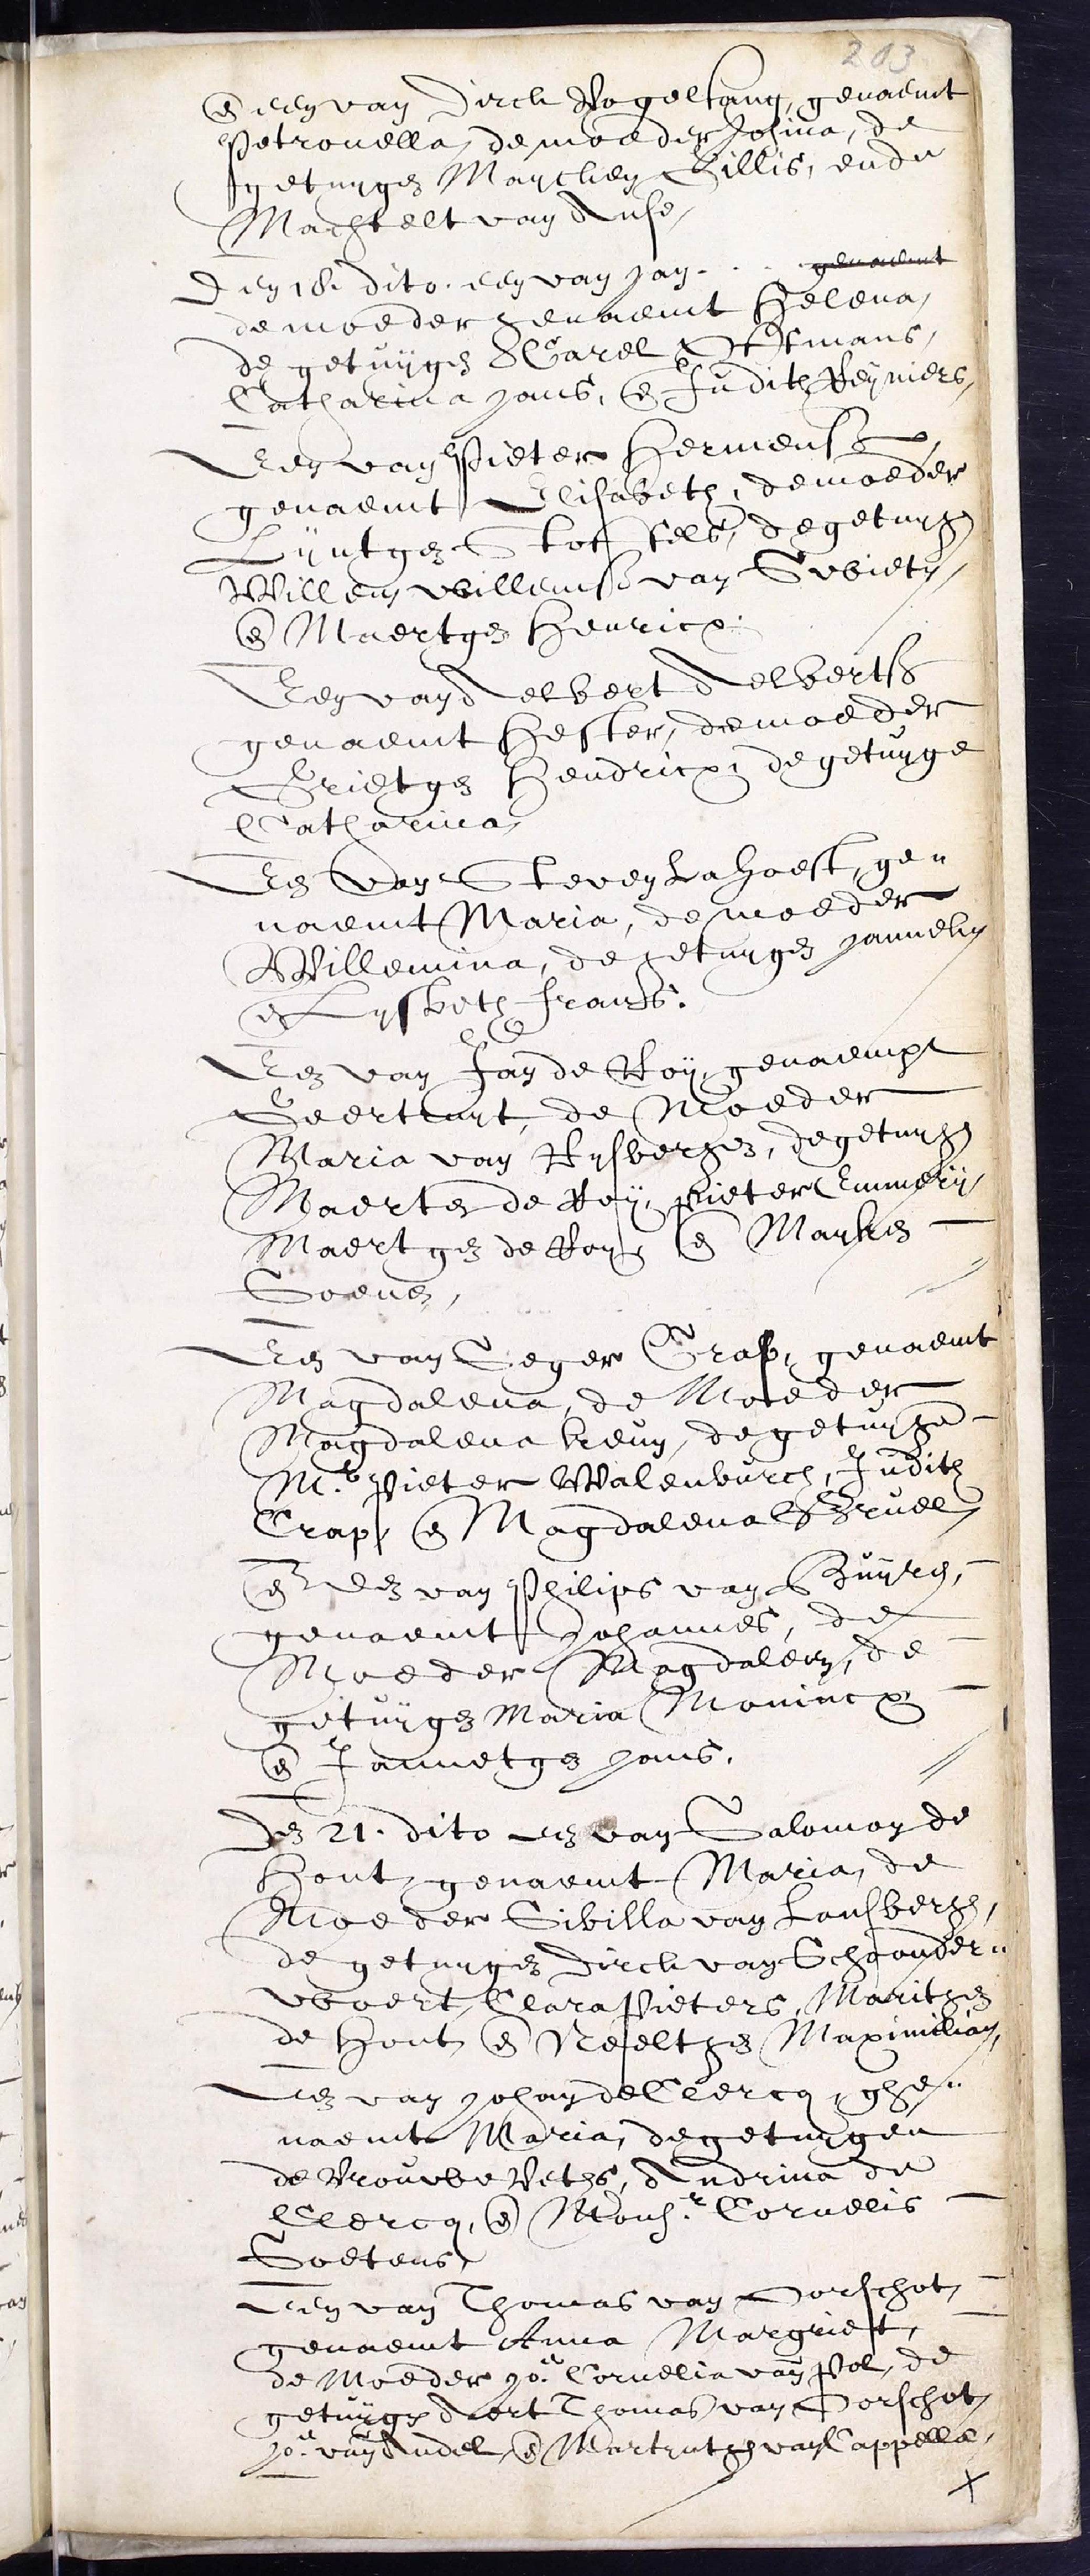 203
en een van Dirck Vogelsang, genaemt
Petronella, de moeder Josina, de
getuyges Mayeken Gillis, ende
Machtelt van Anse,
Den 18. dito. een van Jan . . . genaemt
de moeder genaemt Helena,
de getuijges Carel Oltmans,
Catharina Jans, en Judith Reyniers,
Een van Pieter Hermenss
genaemt Elisabeth, de moeder
Lijntges Stoffels, de getuyges
Willem Willemss van
en Maertges Henricx.
Een van Aelbert Aelbertss
genaemt Hester, de moeder
Grietges Hendricx, de getuyge
Catharina,
Een van Steven Lahoest, ge-
naemt Maria, de moeder
Willemina, de getuyges Janneken
en Lysbeth Frans.
Een van Jan de Roy, genaempt
Geertruyt, de Moeder
Maria van Rysberges, de getuyges
Maerten de Roy, Pieter Emmerij,
Maertges de Roy, en Mayken
Goenes,
Een van Seger Crap, genaemt
Magdalena, de Moeder
Magdalena keun, de getuygen
Mr. Pieter Walenburch, Judith
Crap, en Magdalena Gruel,
en Een van Philips van Buijren,
genaemt Johannes, de
Moeder Magdalena, de
getuyges Maria Monincx
en Jannetges Jans.
Den 21. dito een van Salomon de
Hont, genaemt Maria, de
Moeder Sibilla van Lansberge,
de getuyges Dirck van Schoonder-
woert, Clara Pieters, Maritges
de Hont, en Neeltges Maximiliaen,
Een van Johan de Clercq, ghe-
naemt Maria, de getuygen
de Vrouwe Veths, Andrina de
Clercq, en Monsr. Cornelis
Goetens,
Een van Thomas van Oorschot,
genaemt Anna Margriet,
de Moeder Jou. Cornelia van Pol, de
getuyges Aert Thomas van Oorschot,
Jou. van Andel, en Martyntges van Cappelle,
x